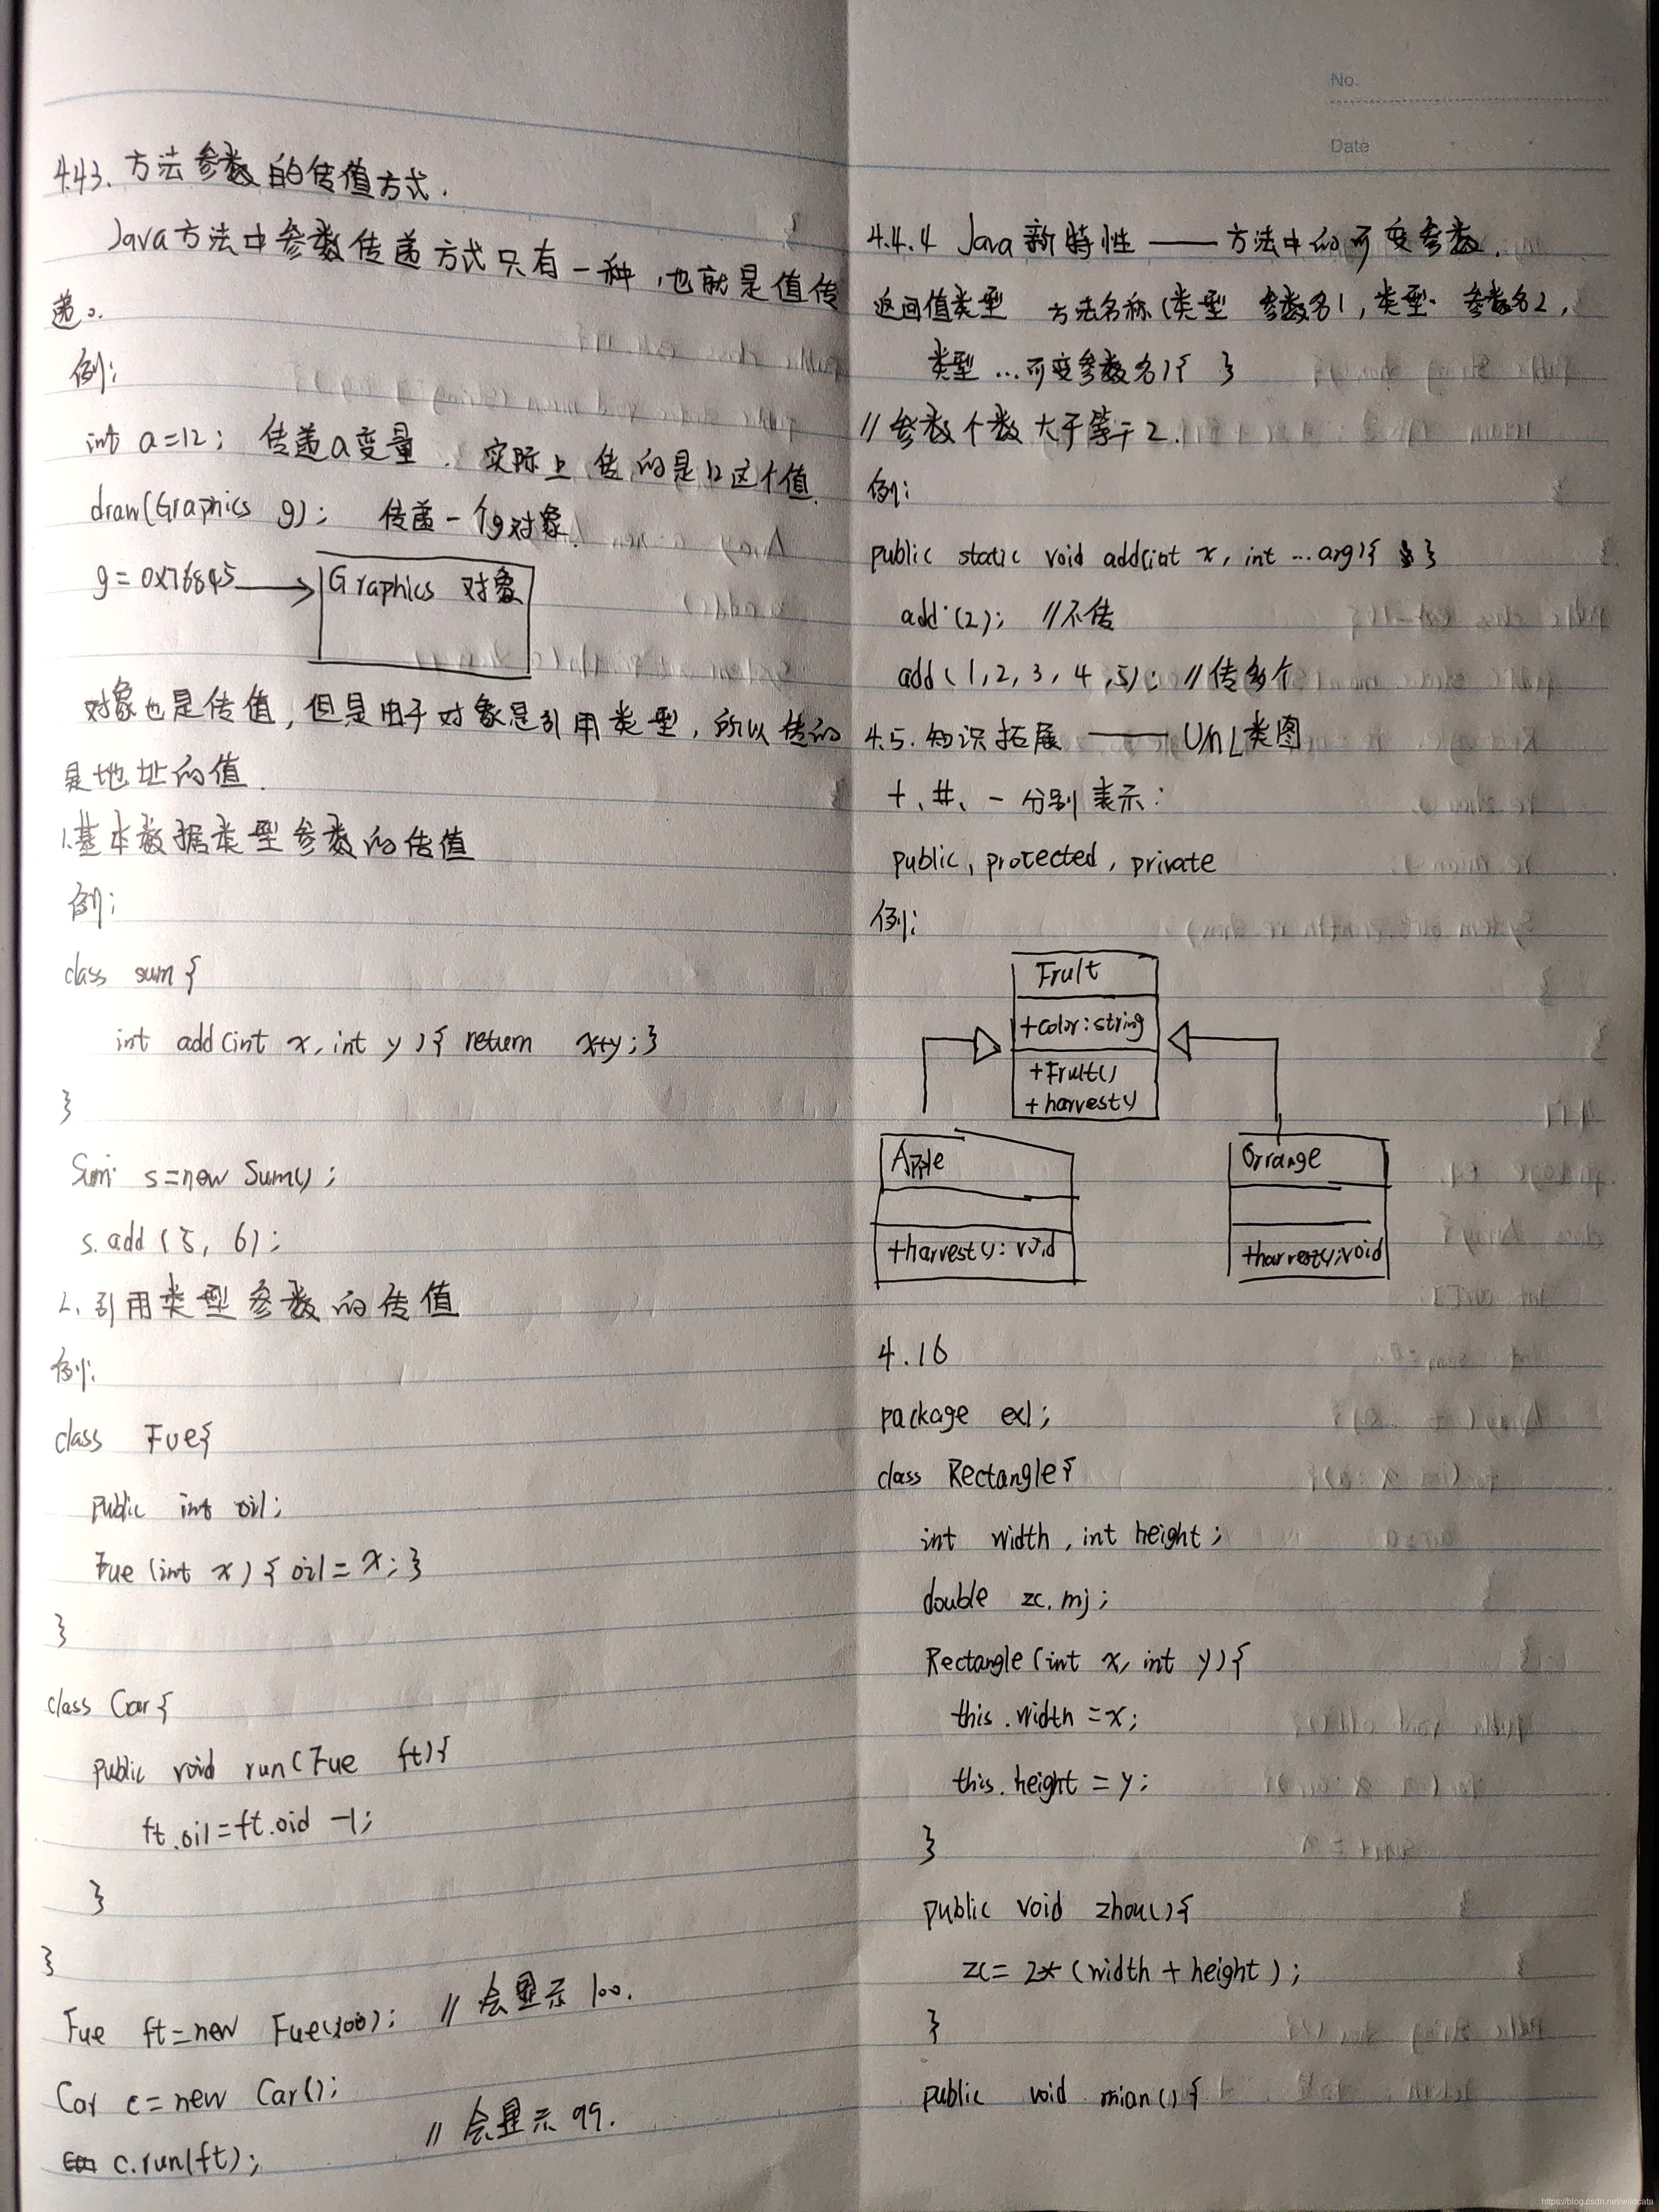 4.4.3. 方法参数的传值方式.
Java方法中参数传递方式只有一种，也就是值传
递。
例：
int a=12; 传递a变量. 实际上传的是12这个值.
draw(Graphics g); 传递一个g对象.
g = 0x76845
Graphics 对象
对象也是传值，但是由于对象是引用类型，所以传的
是地址的值.
1.基本数据类型参数的传值
例：
class sum {
int add(int x, int y){ return x+y; }
}
Sum s=new Sum();
s.add(5, 6);
2.引用类型参数的传值
例：
class Fue{
public int oil;
Fue (int x) { oil = x; }
}
class Car{
public void run(Fue ft){
ft.oil=ft.oid -1;
}
}
Fue ft=new Fue(100); // 会显示100.
Car c=new Car();
c.run(ft); // 会显示99.
No.
Date
4.4.4 Java新特性 —— 方法中的可变参数.
返回值类型 方法名称(类型 参数名1, 类型 参数名2,
类型 ...可变参数名){ }
// 参数个数大于等于2.
例：
public static void add(int x, int ...arg){ }
add(2); //不传
add(1,2,3,4,5); //传多个
4.5.知识拓展 —— UML类图
+、#、- 分别表示：
public, protected, private
例：
Fruit
+color:string
+Fruit()
+harvest()
Apple
+harvest():void
Orrange
+harvest():void
4.16
package ex1;
class Rectangle{
int width, int height;
double zc. mj;
Rectangle(int x, int y){
this.width =x;
this.height = y;
}
public void zhou(){
zc= 2*(width + height);
}
public void mian(){
https://blog.csdn.net/wildcata